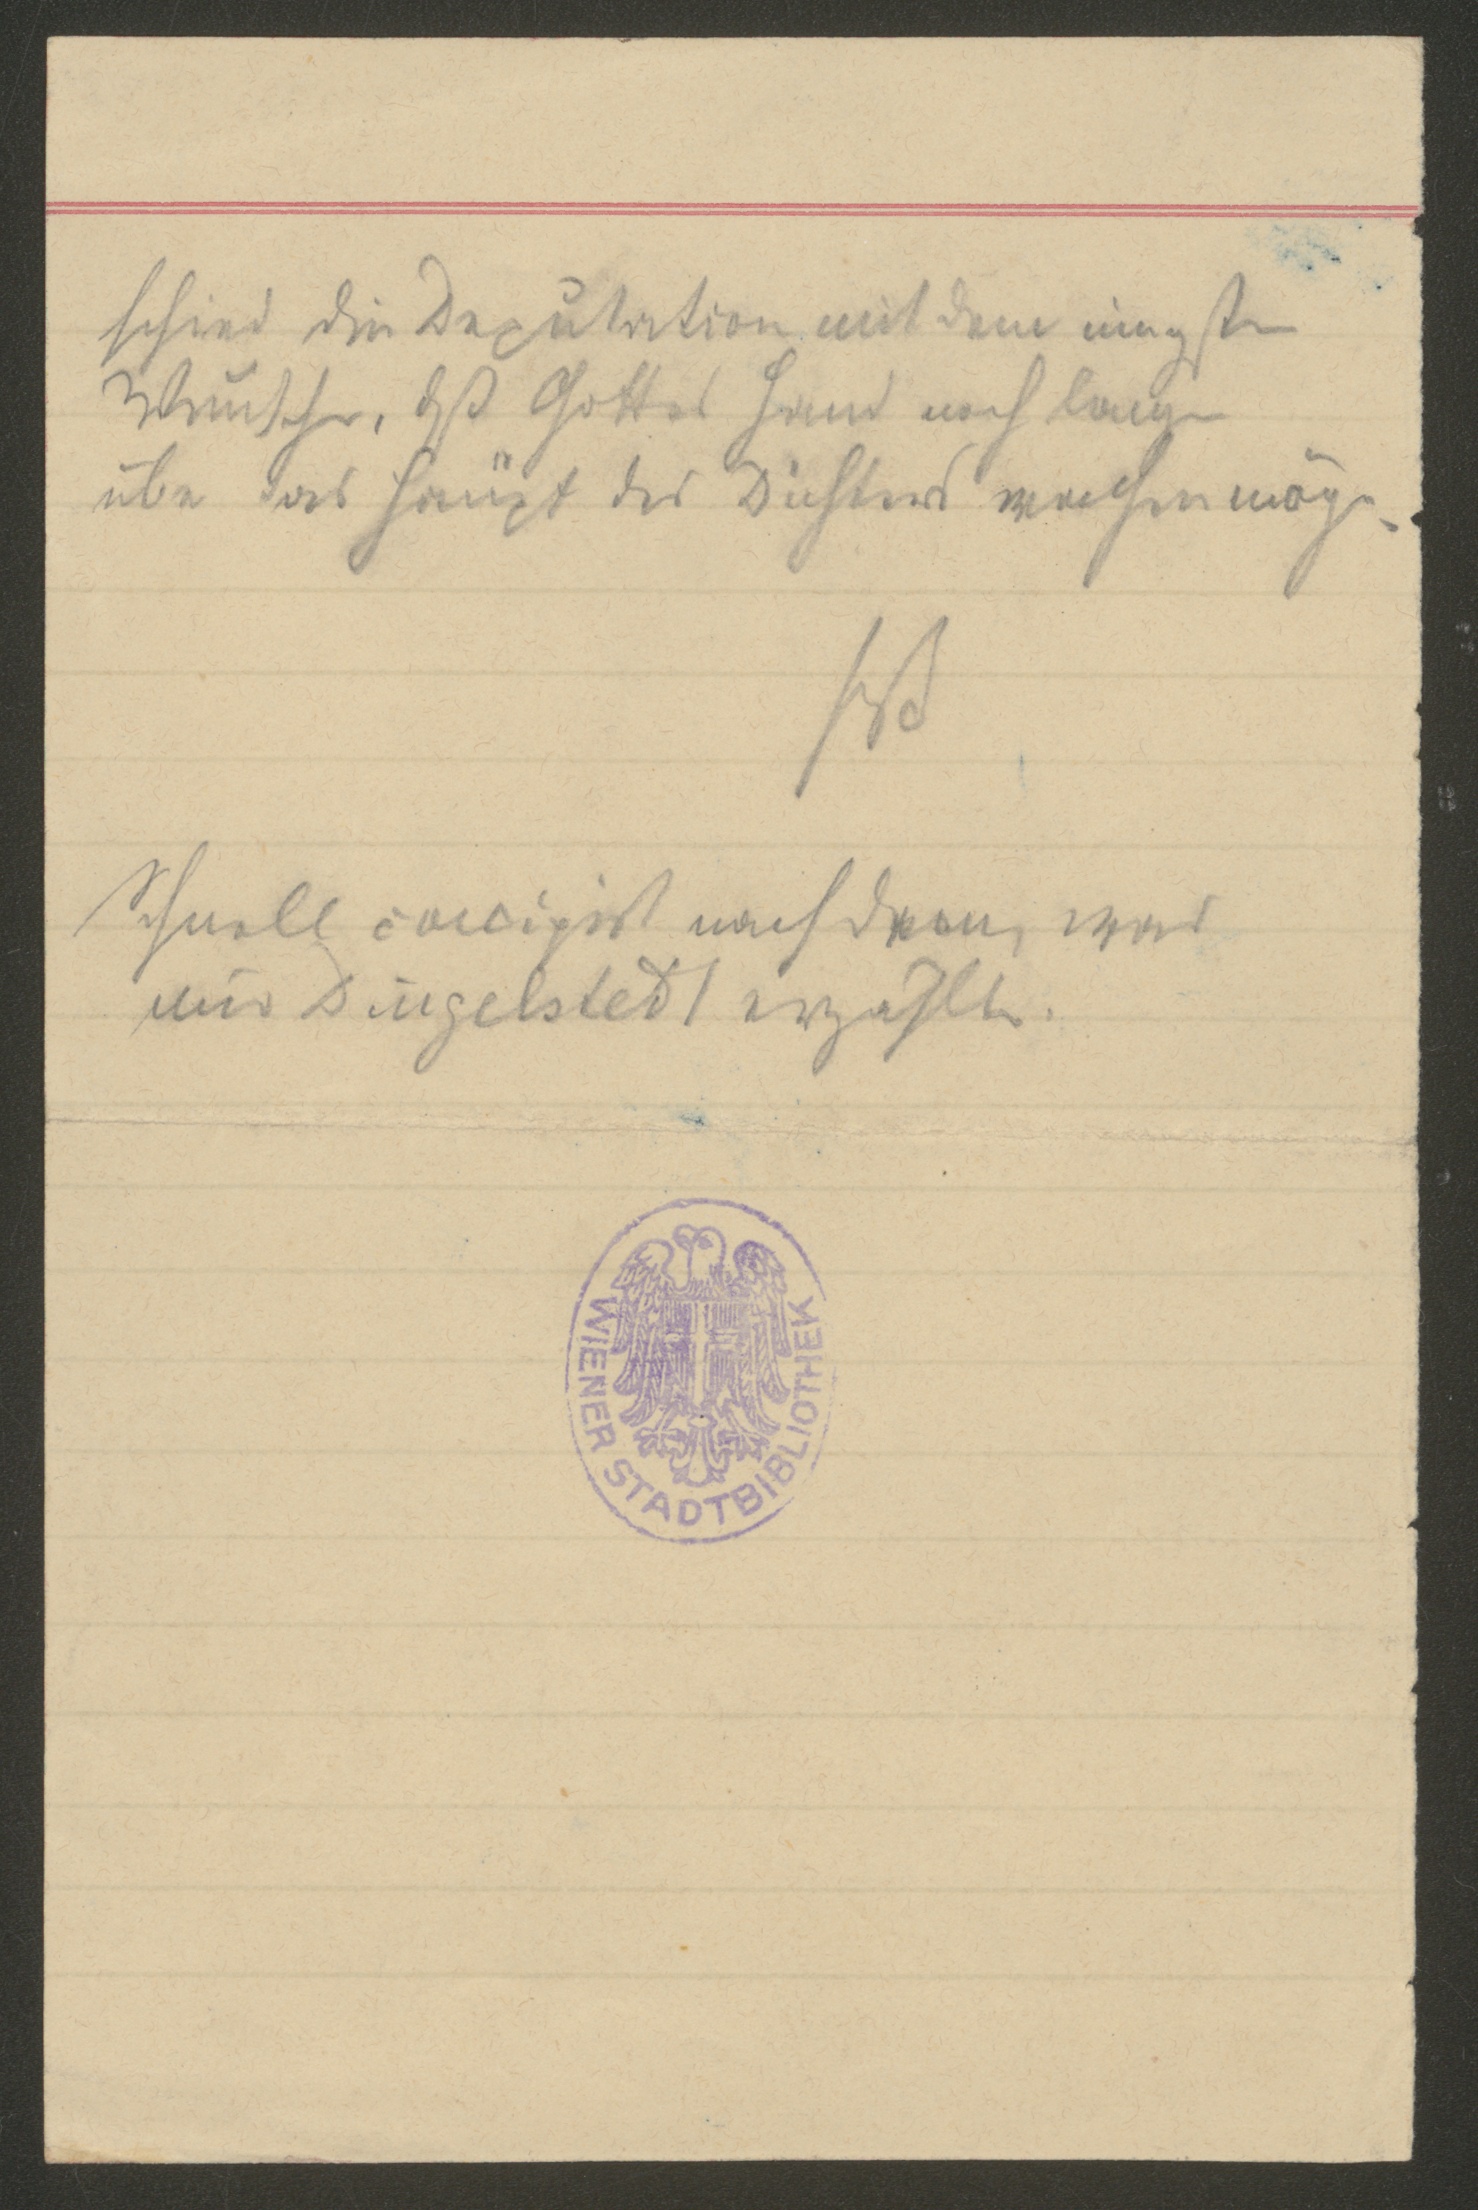 schied die Deputation mit dem innigsten
Wunsche, daß Gottes Hand noch lange
über das Haupt des Dichters wachen möge.
Schnell concipirt nach dem, was
mir Dingelstedt erzählte.
WIENER STADTBIBLIOTHEK